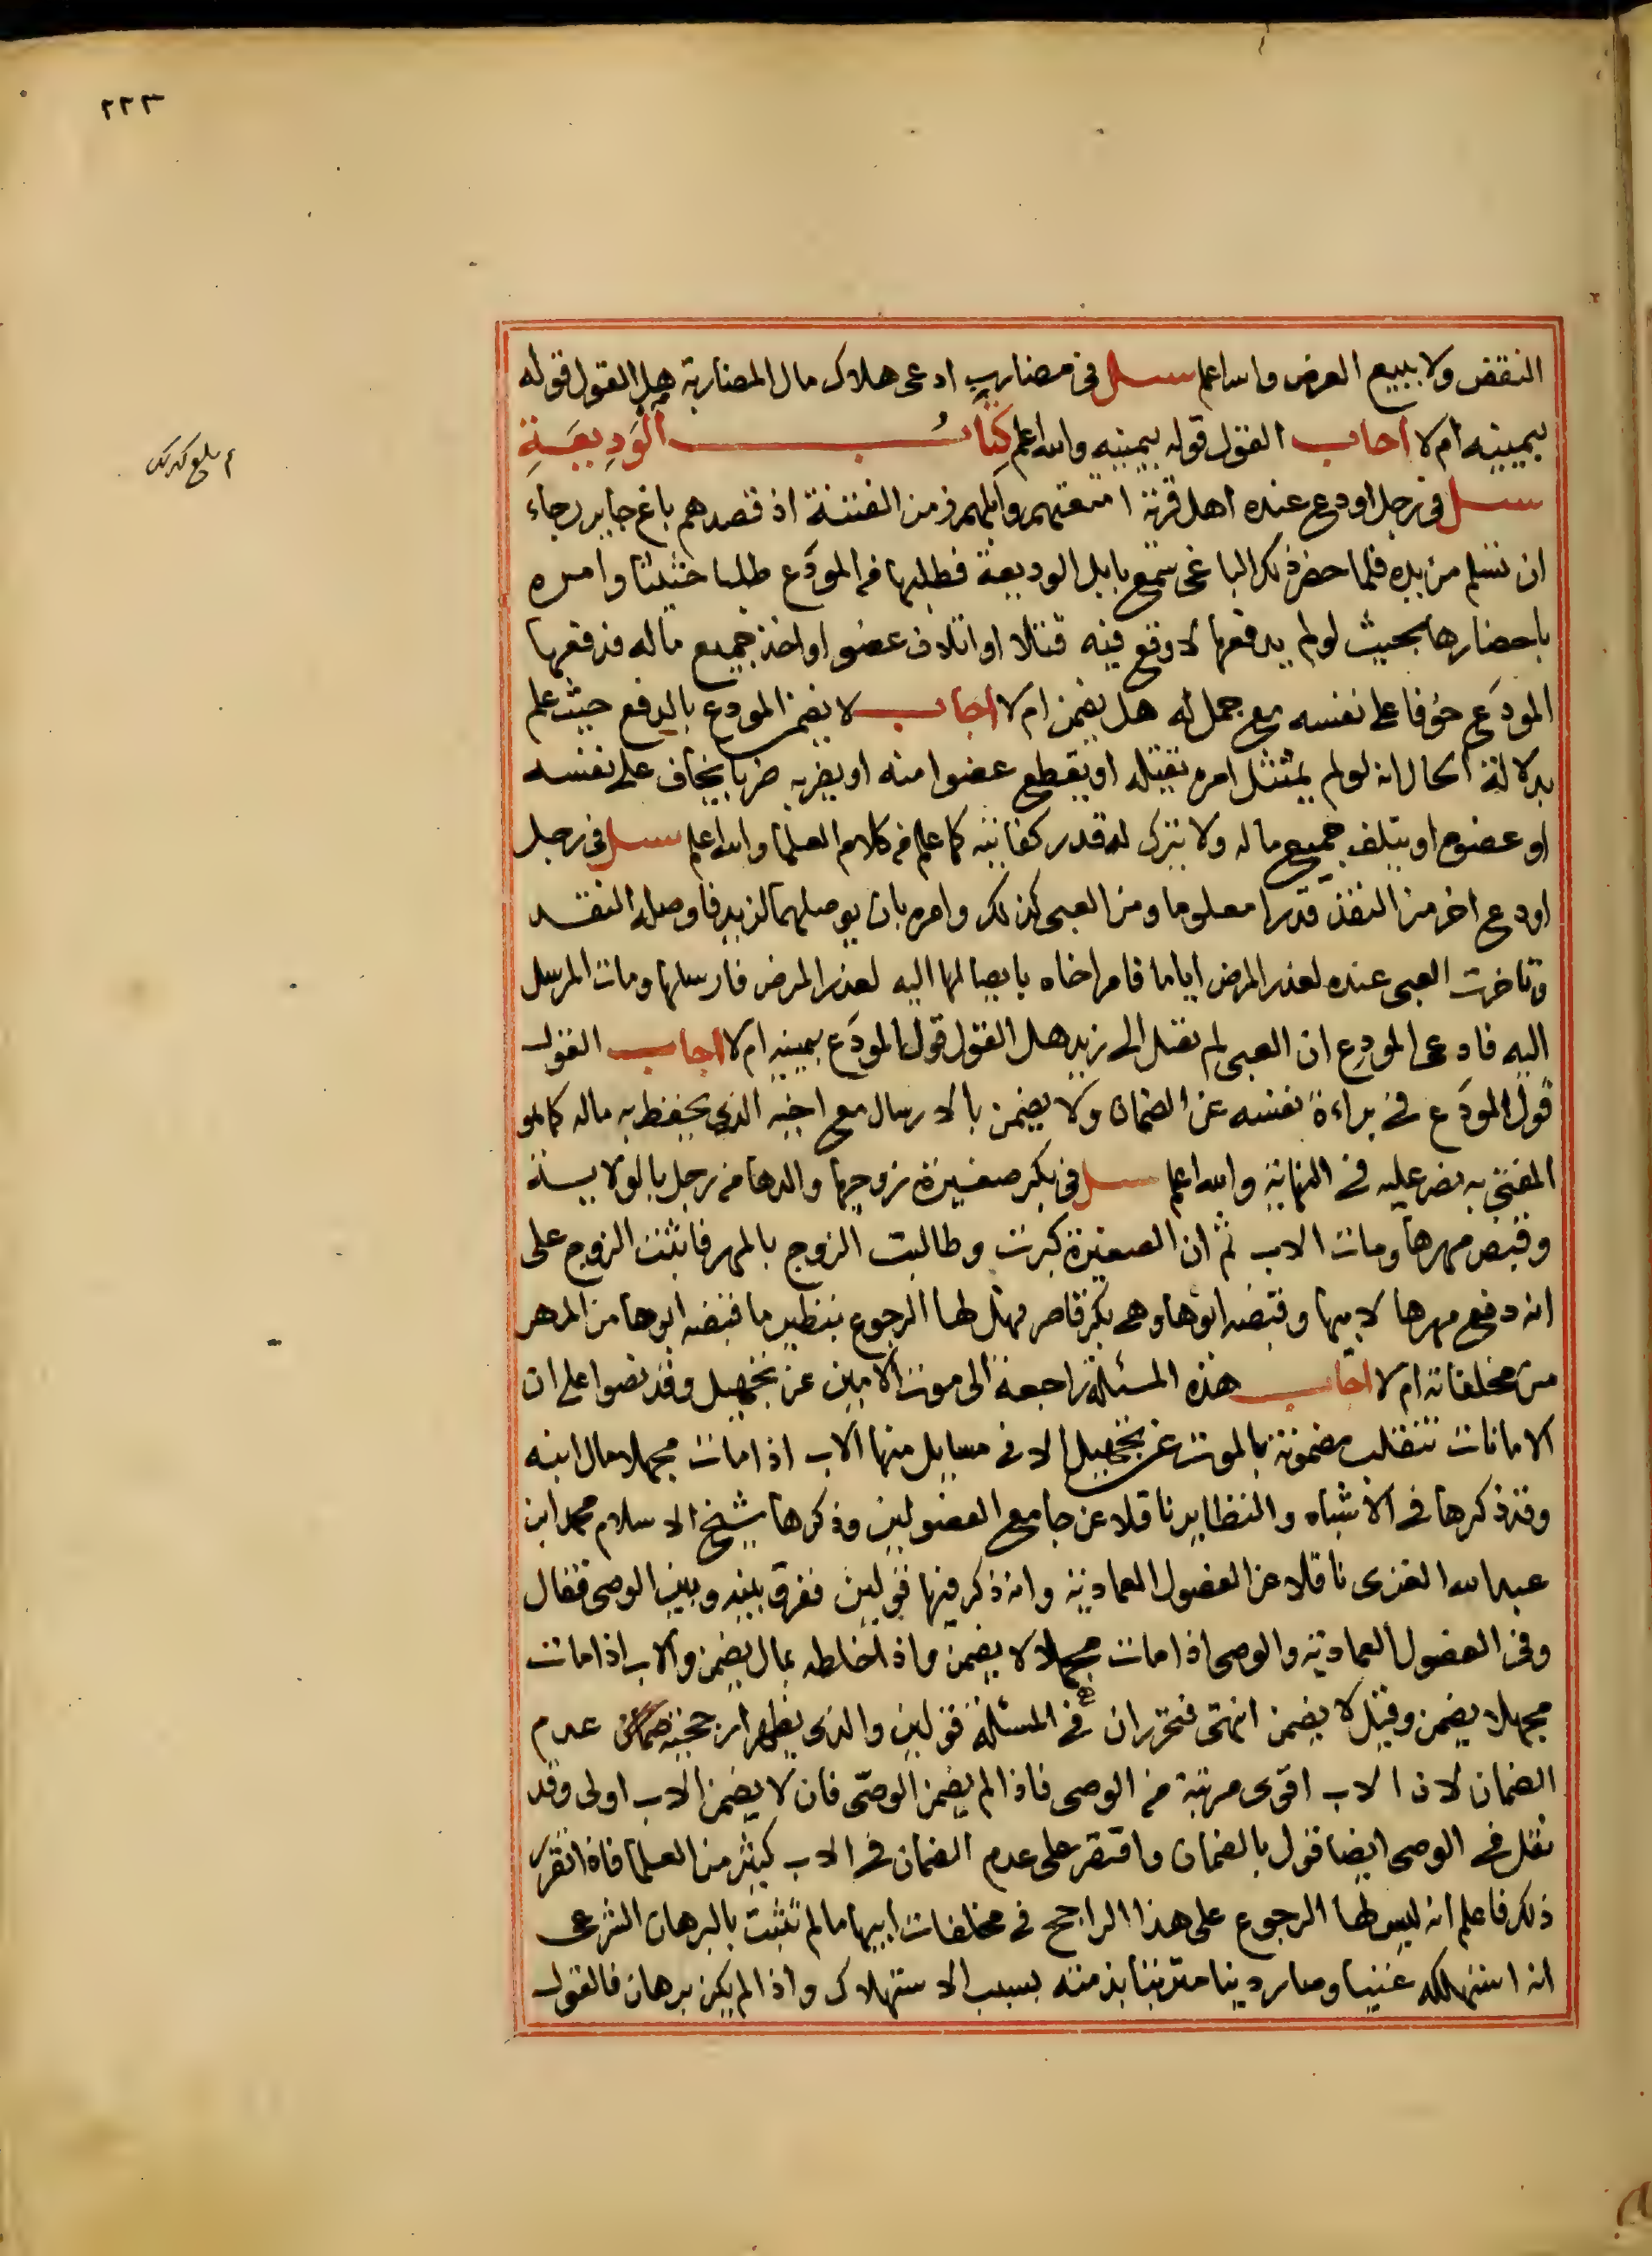 ٢٢٣
النقض ولا ببيع العرض والله اعلم سئل فى مضارب ادعى هلاك مال المضاربة هل القول قوله
بيمينه ام لا اجاب القول قوله بيمينه والله اعلم كتاب الوديعة
سئل فى رجل اودع عنده اهل قرية امتعتهم وابلهم زمن الفتنة اذ قصدهم باغ جاير رجاء
ان تسلم من يده فلما حضر ذلك الباغى سمع بابل الوديعة فطلبها من المودَع طلبا حثيثا وامره
باحضارها بحيث لو لم يدفعها لاوقع فيه قتلا او اتلاف عضو او اخذ جميع ماله فدفعها
المودَع خوفا على نفسه مع جمل له هل يضمن ام لا اجاب لا يضمن المودع بالدفع حيث علم
بدلالة الحال انه لو لم يمتثل امره يقتله او يقطع عضوا منه او يضربه ضربا يخاف على نفسه
او عضوه او يتلف جميع ماله ولا يترك له قدر كفايته كما علم من كلام العلما والله اعلم سئل فى رجل
اودع اخر من النقد قدرا معلوما ومن العبى كذلك وامره بان يوصلهما لزيد فاوصله النقد
وتاخرت العبى عنده لعذر المرض اياما فامر اخاه بايصالها اليه لعذر المرض فارسلها ومات المرسل
اليه فادعى المودِع ان العبى لم تصل الى زيد هل القول قول المودَع بيمينه ام لا اجاب القول
قول المودَع فى براءة نفسه عن الضمان ولا يضمن بالارسال مع اخيه الذى يحفظ به ماله كما هو
المفتى به نص عليه فى النهاية والله اعلم سئل فى بكر صغيرة زوجها والدها من رجل بالولاية
وقبض مهرها ومات الاب ثم ان الصغيرة كبرت وطالبت الزوج بالمهر فاثبت الزوج على
انه دفع مهرها لابيها وقبضه ابوها وهى بكر قاصر فهل لها الرجوع بنظير ما قبضه ابوها من المهر
من مخلفاته ام لا اجاب هذه المسئلة راجعة الى موت الامين عن تجهيل وقد نصوا على ان
الامانات تنقلب مضمونة بالموت عن تجهيل الا فى مسايل منها الاب اذا مات مجهلا مال ابنه
وقد ذكرها فى الاشباه والنظاير ناقلا عن جامع الفصولين وذكرها شيخ الاسلام محمد ابن
عبد الله الغزى ناقلا عن الفصول العمادية وانه ذكر فيها قولين ففرق بينه وبين الوصى فقال
وفى الفصول العمادية والوصى اذا مات مجهلا لا يضمن واذا خلطه بماله يضمن والاب اذا مات
مجهلا يضمن وقيل لا يضمن انتهى فتحرر ان فى المسئلة قولين والذى يظهر ارجحيته عدم
الضمان لان الاب اقوى مرتبة من الوصى فاذا لم يضمن الوصى فان لا يضمن الاب اولى وقد
نقل فى الوصى ايضا قول بالضمان واقتصر على عدم الضمان فى الاب كثير من العلما فاذا تقرر
ذلك فاعلم انه ليس لها الرجوع على هذا الراجح فى مخلفات ابيها ما لم تثبت بالبرهان الشرعى
انه استهلكه غنيا وصار دينا مترتبا بذمته بسبب الاستهلاك واذا لم يكن برهان فالقول